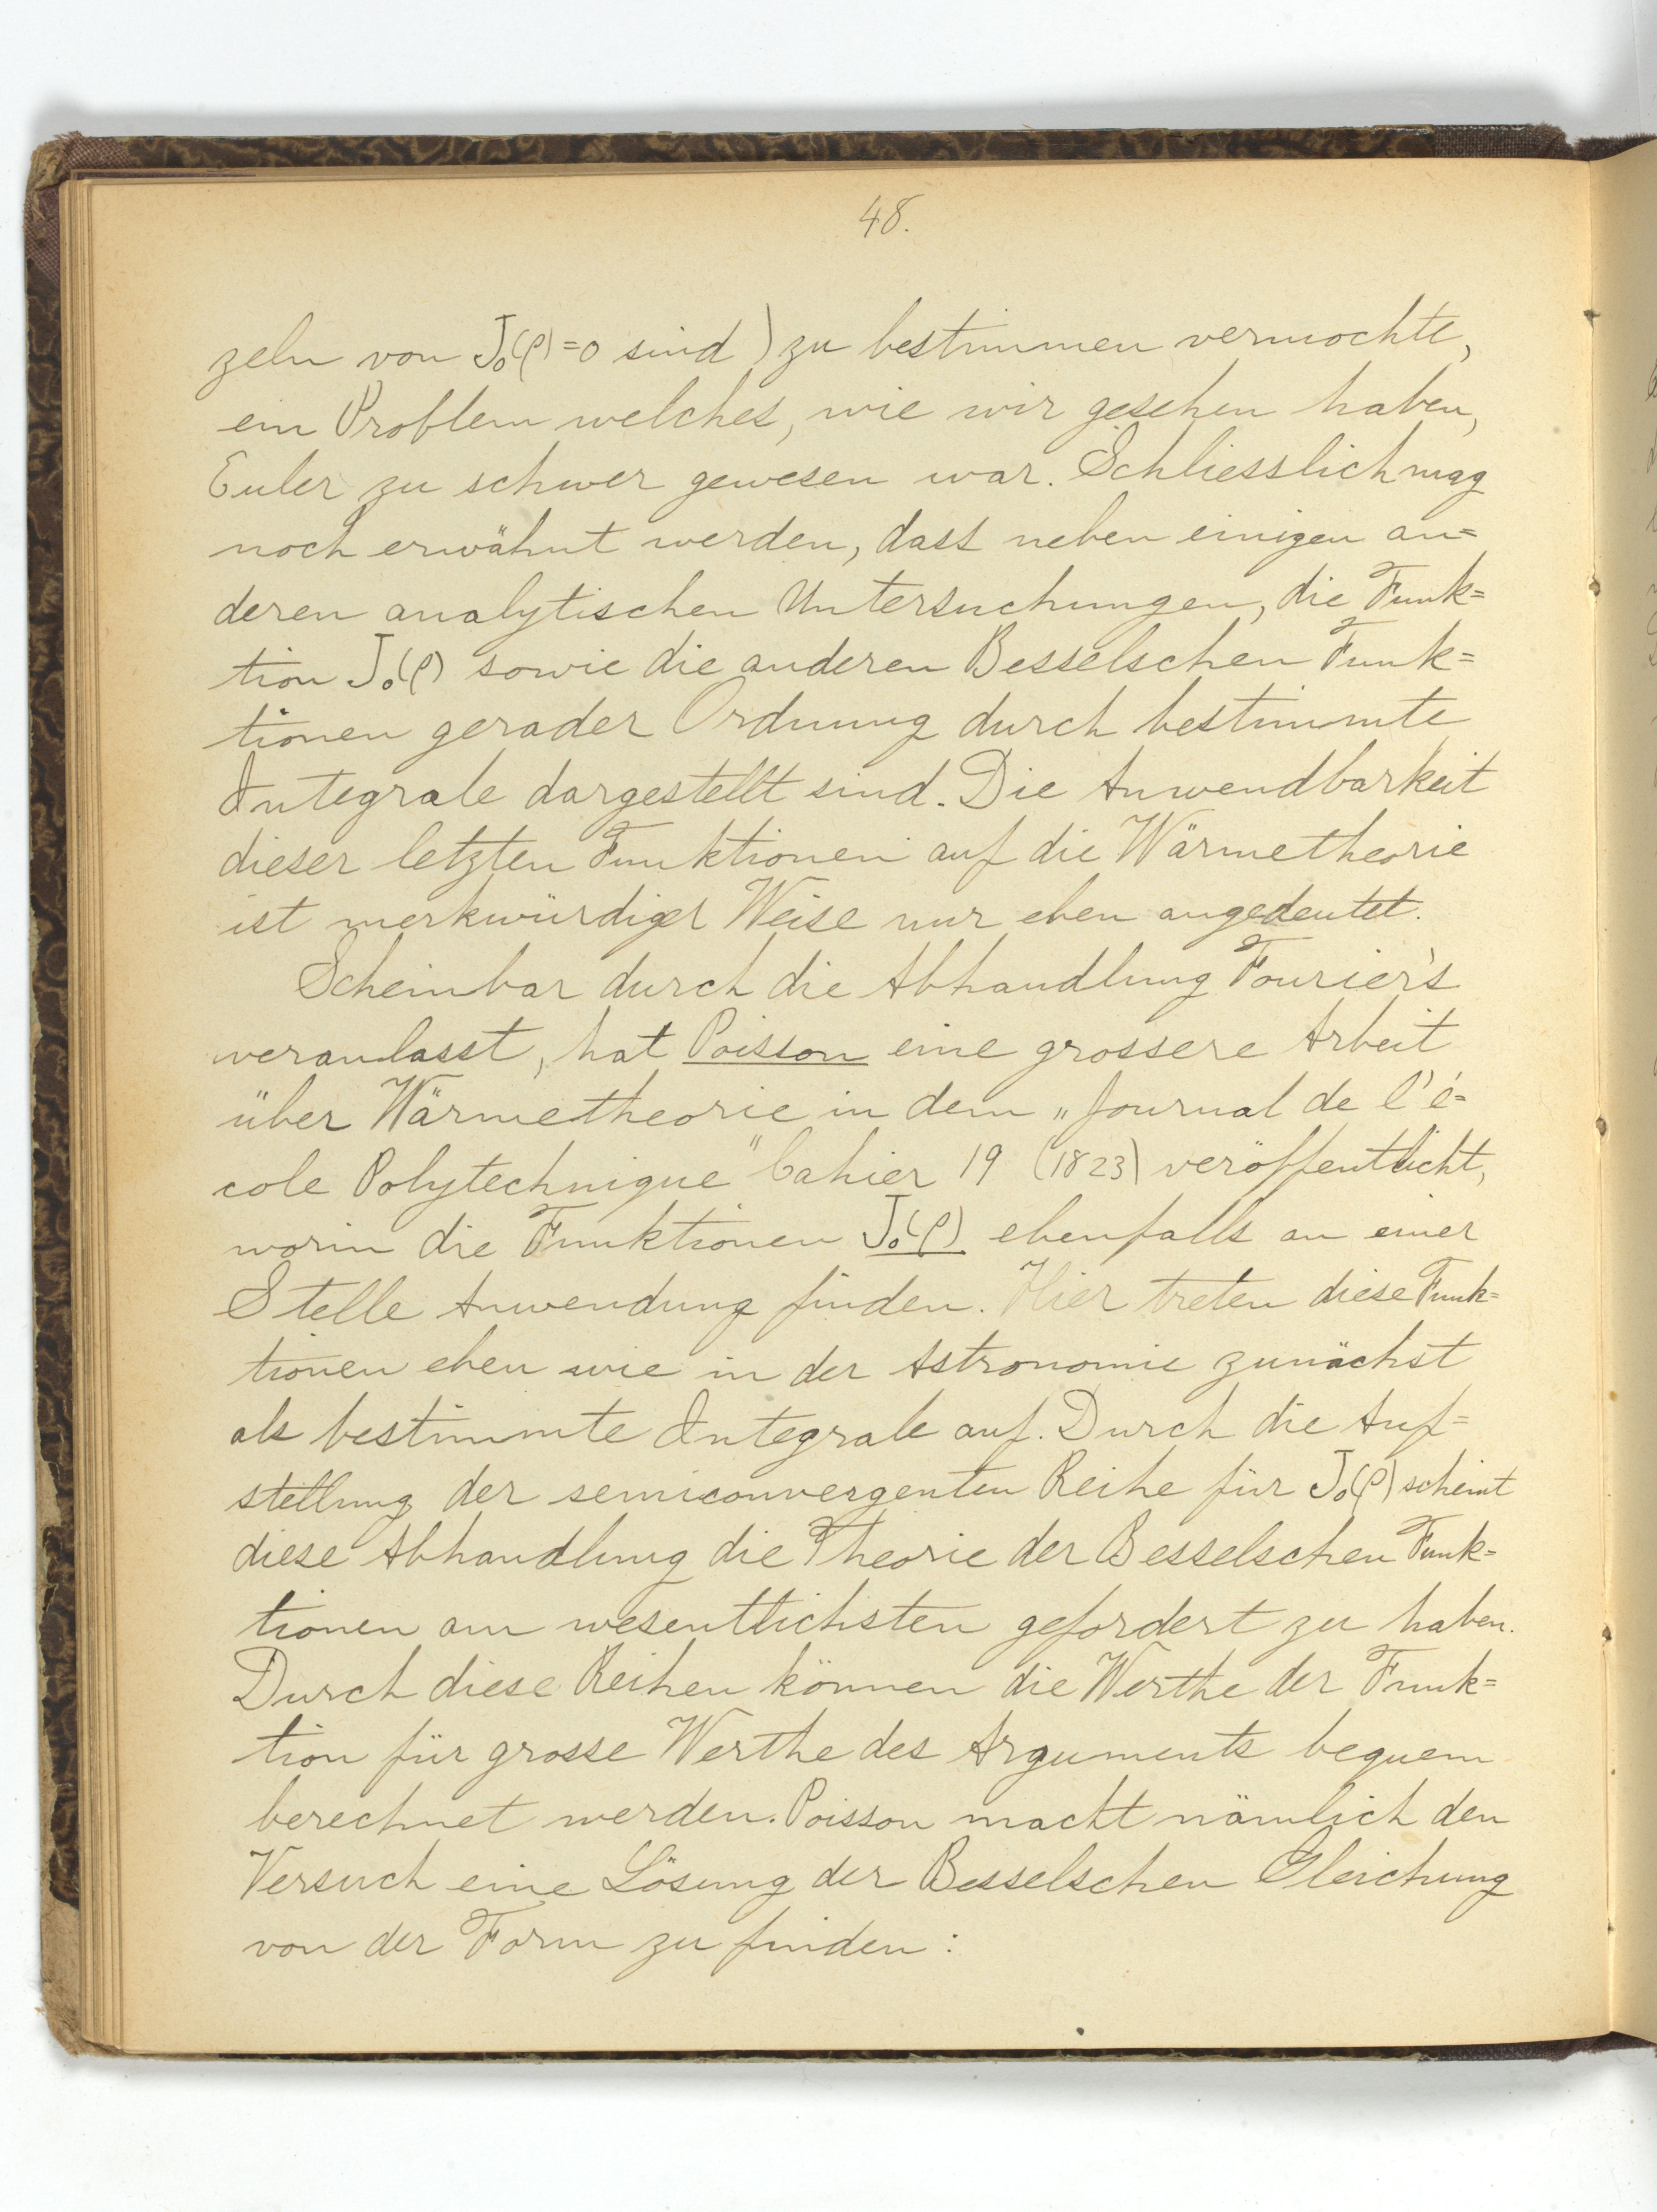 48.
zeln von J₀(ρ)=0 sind) zu bestimmen vermochte,
ein Problem welches, wie wir gesehen haben,
Euler zu schwer gewesen war. Schliesslich mag
noch erwähnt werden, dass neben einigen an=
deren analytischen Untersuchungen, die Funk=
tion J₀(ρ) sowie die anderen Besselschen Funk=
tionen gerader Ordnung durch bestimmte
Integrale dargestellt sind. Die Anwendbarkeit
dieser letzten Funktionen auf die Wärmetheorie
ist merkwürdiger Weise nur eben angedeutet.
Scheinbar durch die Abhandlung Fourier's
veranlasst, hat Poisson eine grossere Arbeit
über Wärmetheorie in dem „Journal de l'é=
cole Polytechnique" Cahier 19 (1823) veröffentlicht,
worin die Funktionen J₀(ρ) ebenfalls an einer
Stelle Anwendung finden. Hier treten diese Funk=
tionen eben wie in der Astronomie zunächst
als bestimmte Integrale auf. Durch die Auf=
stellung der semiconvergenten Reihe für J₀(ρ) scheint
diese Abhandlung die Theorie der Besselschen Funk=
tionen am wesentlichsten gefordert zu haben.
Durch diese Reihen können die Werthe der Funk=
tion für grosse Werthe des Arguments bequem
berechnet werden. Poisson macht nämlich den
Versuch eine Lösung der Besselschen Gleichung
von der Form zu finden: